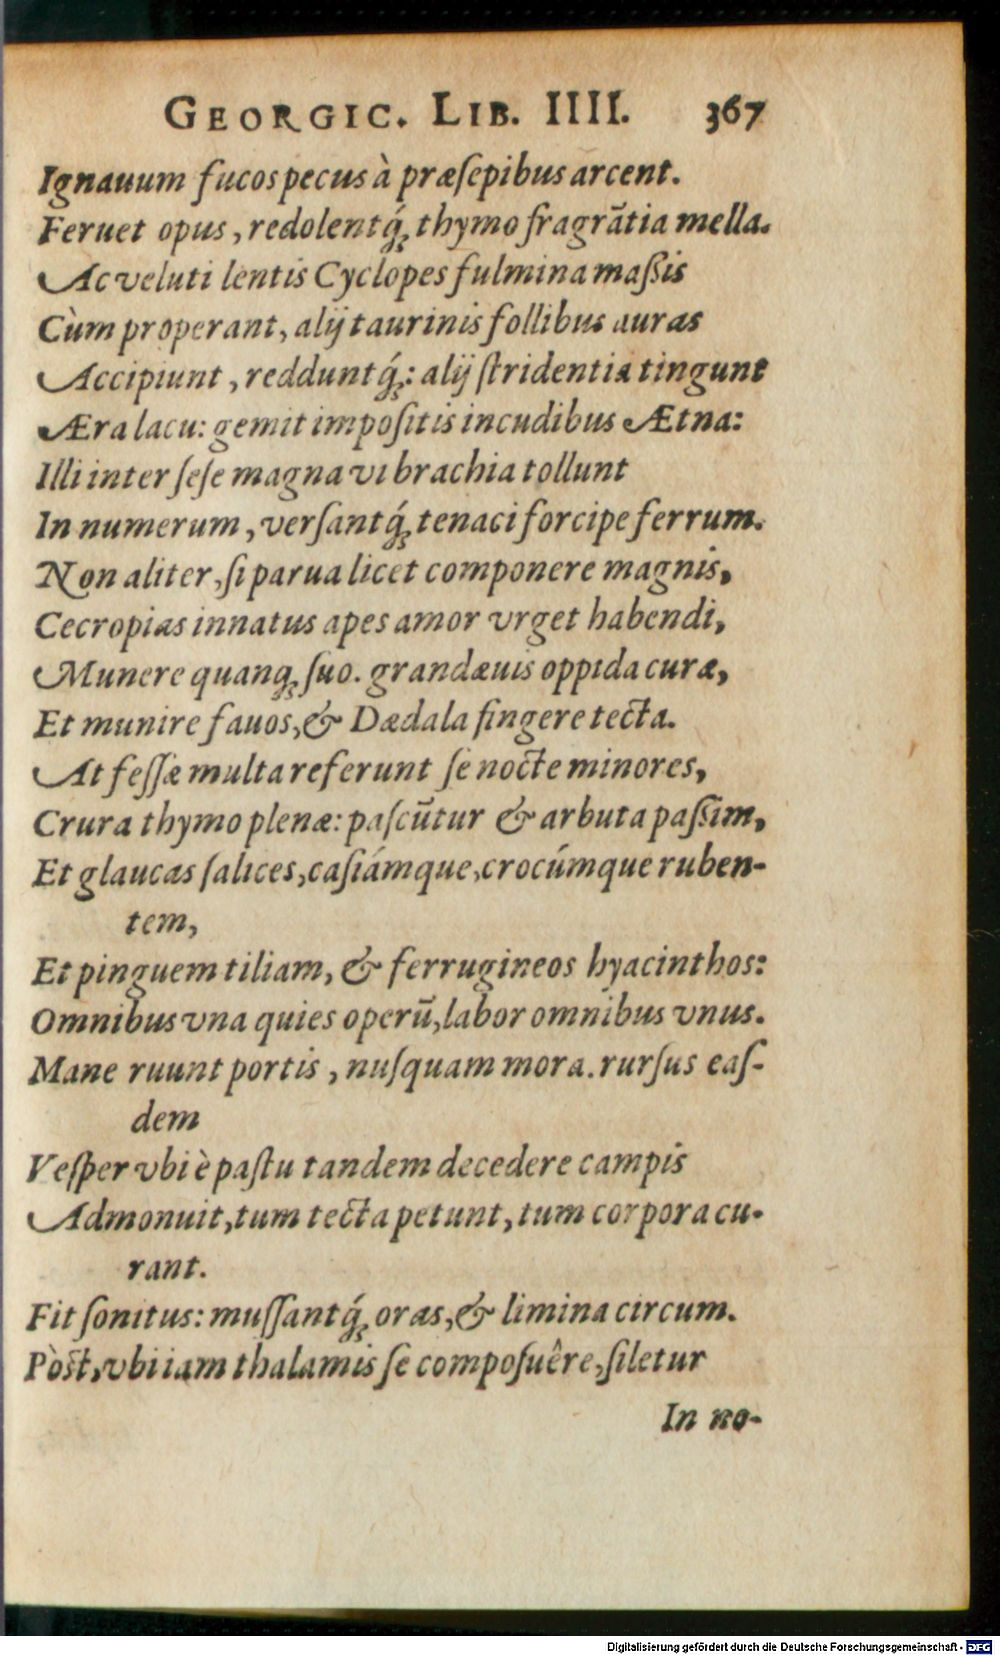 GEORGIC. LIB. IIII. 367
Ignauum fucos pecus à præſepibus arcent.
Feruet opus, redolentq́; thymo fragrātia mella.
Ac veluti lentis Cyclopes fulmina maſsis
Cùm properant, alij taurinis follibus auras
Accipiunt, redduntq́;: alij ſtridentia tingunt
Æra lacu: gemit impoſitis incudibus Ætna:
Illi inter ſeſe magna vi brachia tollunt
In numerum, verſantq́; tenaci forcipe ferrum.
Non aliter, ſi parua licet componere magnis,
Cecropias innatus apes amor vrget habendi,
Munere quanq; ſuo. grandæuis oppida curæ,
Et munire fauos, & Dædala fingere tecta.
At feſſæ multa referunt ſe nocte minores,
Crura thymo plenæ: paſcūtur & arbuta paſsim,
Et glaucas ſalices, caſiámque, crocúmque ruben-
tem,
Et pinguem tiliam, & ferrugineos hyacinthos:
Omnibus vna quies operū, labor omnibus vnus.
Mane ruunt portis, nuſquam mora. rurſus eaſ-
dem
Veſper vbi è paſtu tandem decedere campis
Admonuit, tum tecta petunt, tum corpora cu-
rant.
Fit ſonitus: muſſantq́; oras, & limina circum.
Pòſt, vbi iam thalamis ſe compoſuêre, ſiletur
In no-
Digitalisierung gefördert durch die Deutsche Forschungsgemeinschaft - DFG